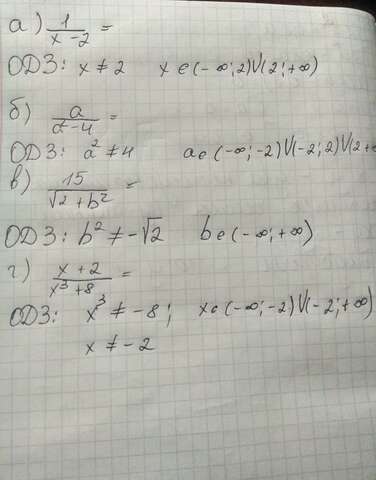 а) 1/(x-2) =
ОДЗ: x ≠ 2 x ∈ (-∞; 2) V (2; +∞)
б) a/(a²-4) =
ОДЗ: a² ≠ 4 a ∈ (-∞; -2) V (-2; 2) V (2 +∞
в) 15/(√2 + b²) =
ОДЗ: b² ≠ -√2 b ∈ (-∞; +∞)
г) (x + 2)/(x³ + 8) =
ОДЗ: x³ ≠ -8; x ∈ (-∞; -2) V (-2; +∞)
x ≠ -2